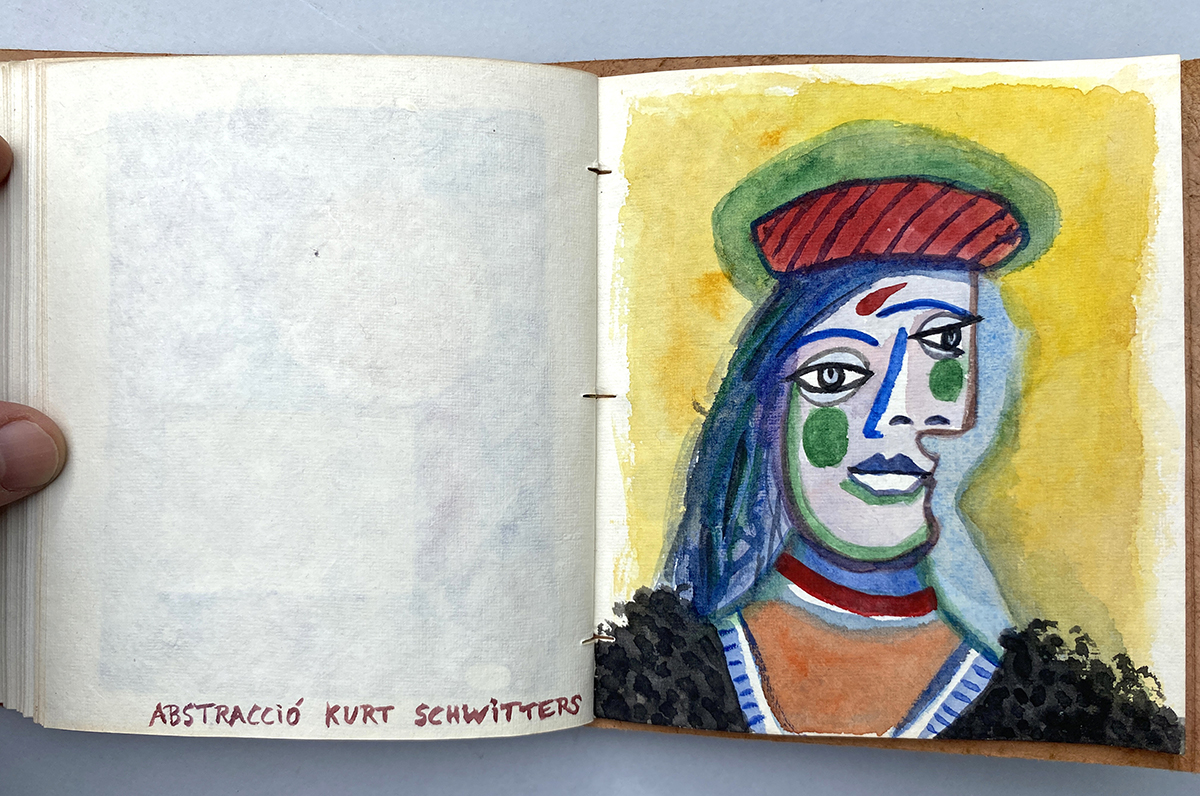 ABSTRACCIÓ KURT SCHWITTERS